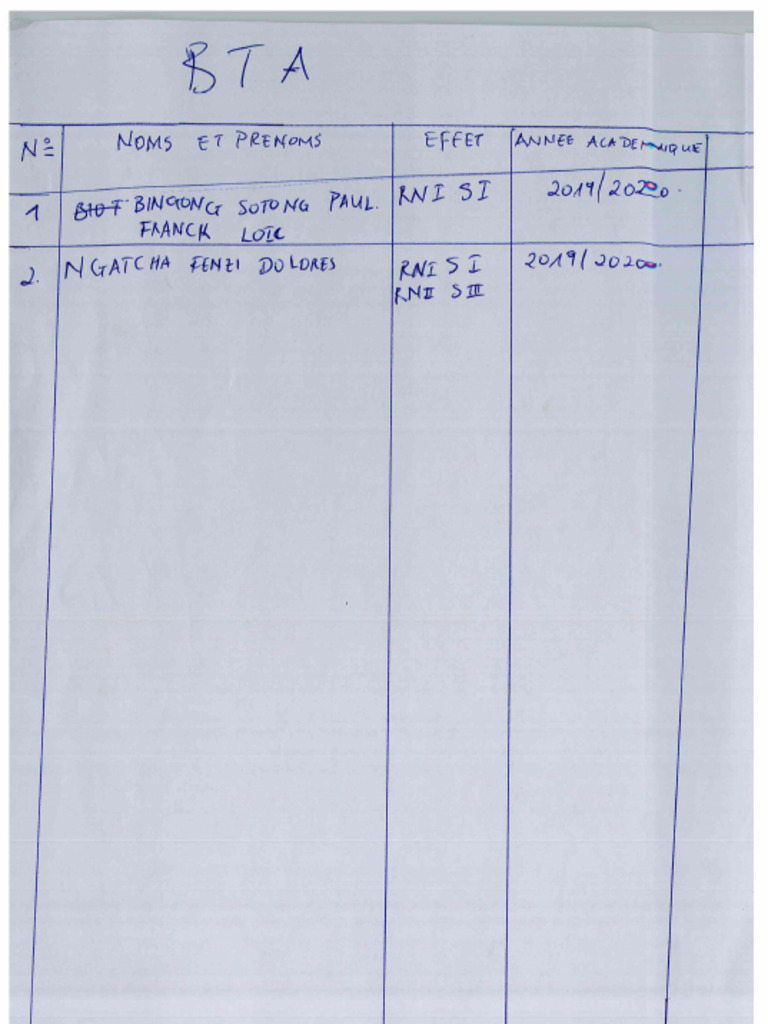 BTA
N° NOMS ET PRENOMS EFFET ANNEE ACADEMIQUE
1 BINGONG SOTONG PAUL. RNI SI 2019/2020.
FRANCK LOIC
2. NGATCHA FENZI DOLORES RNI SI 2019/2020.
RNII SIII